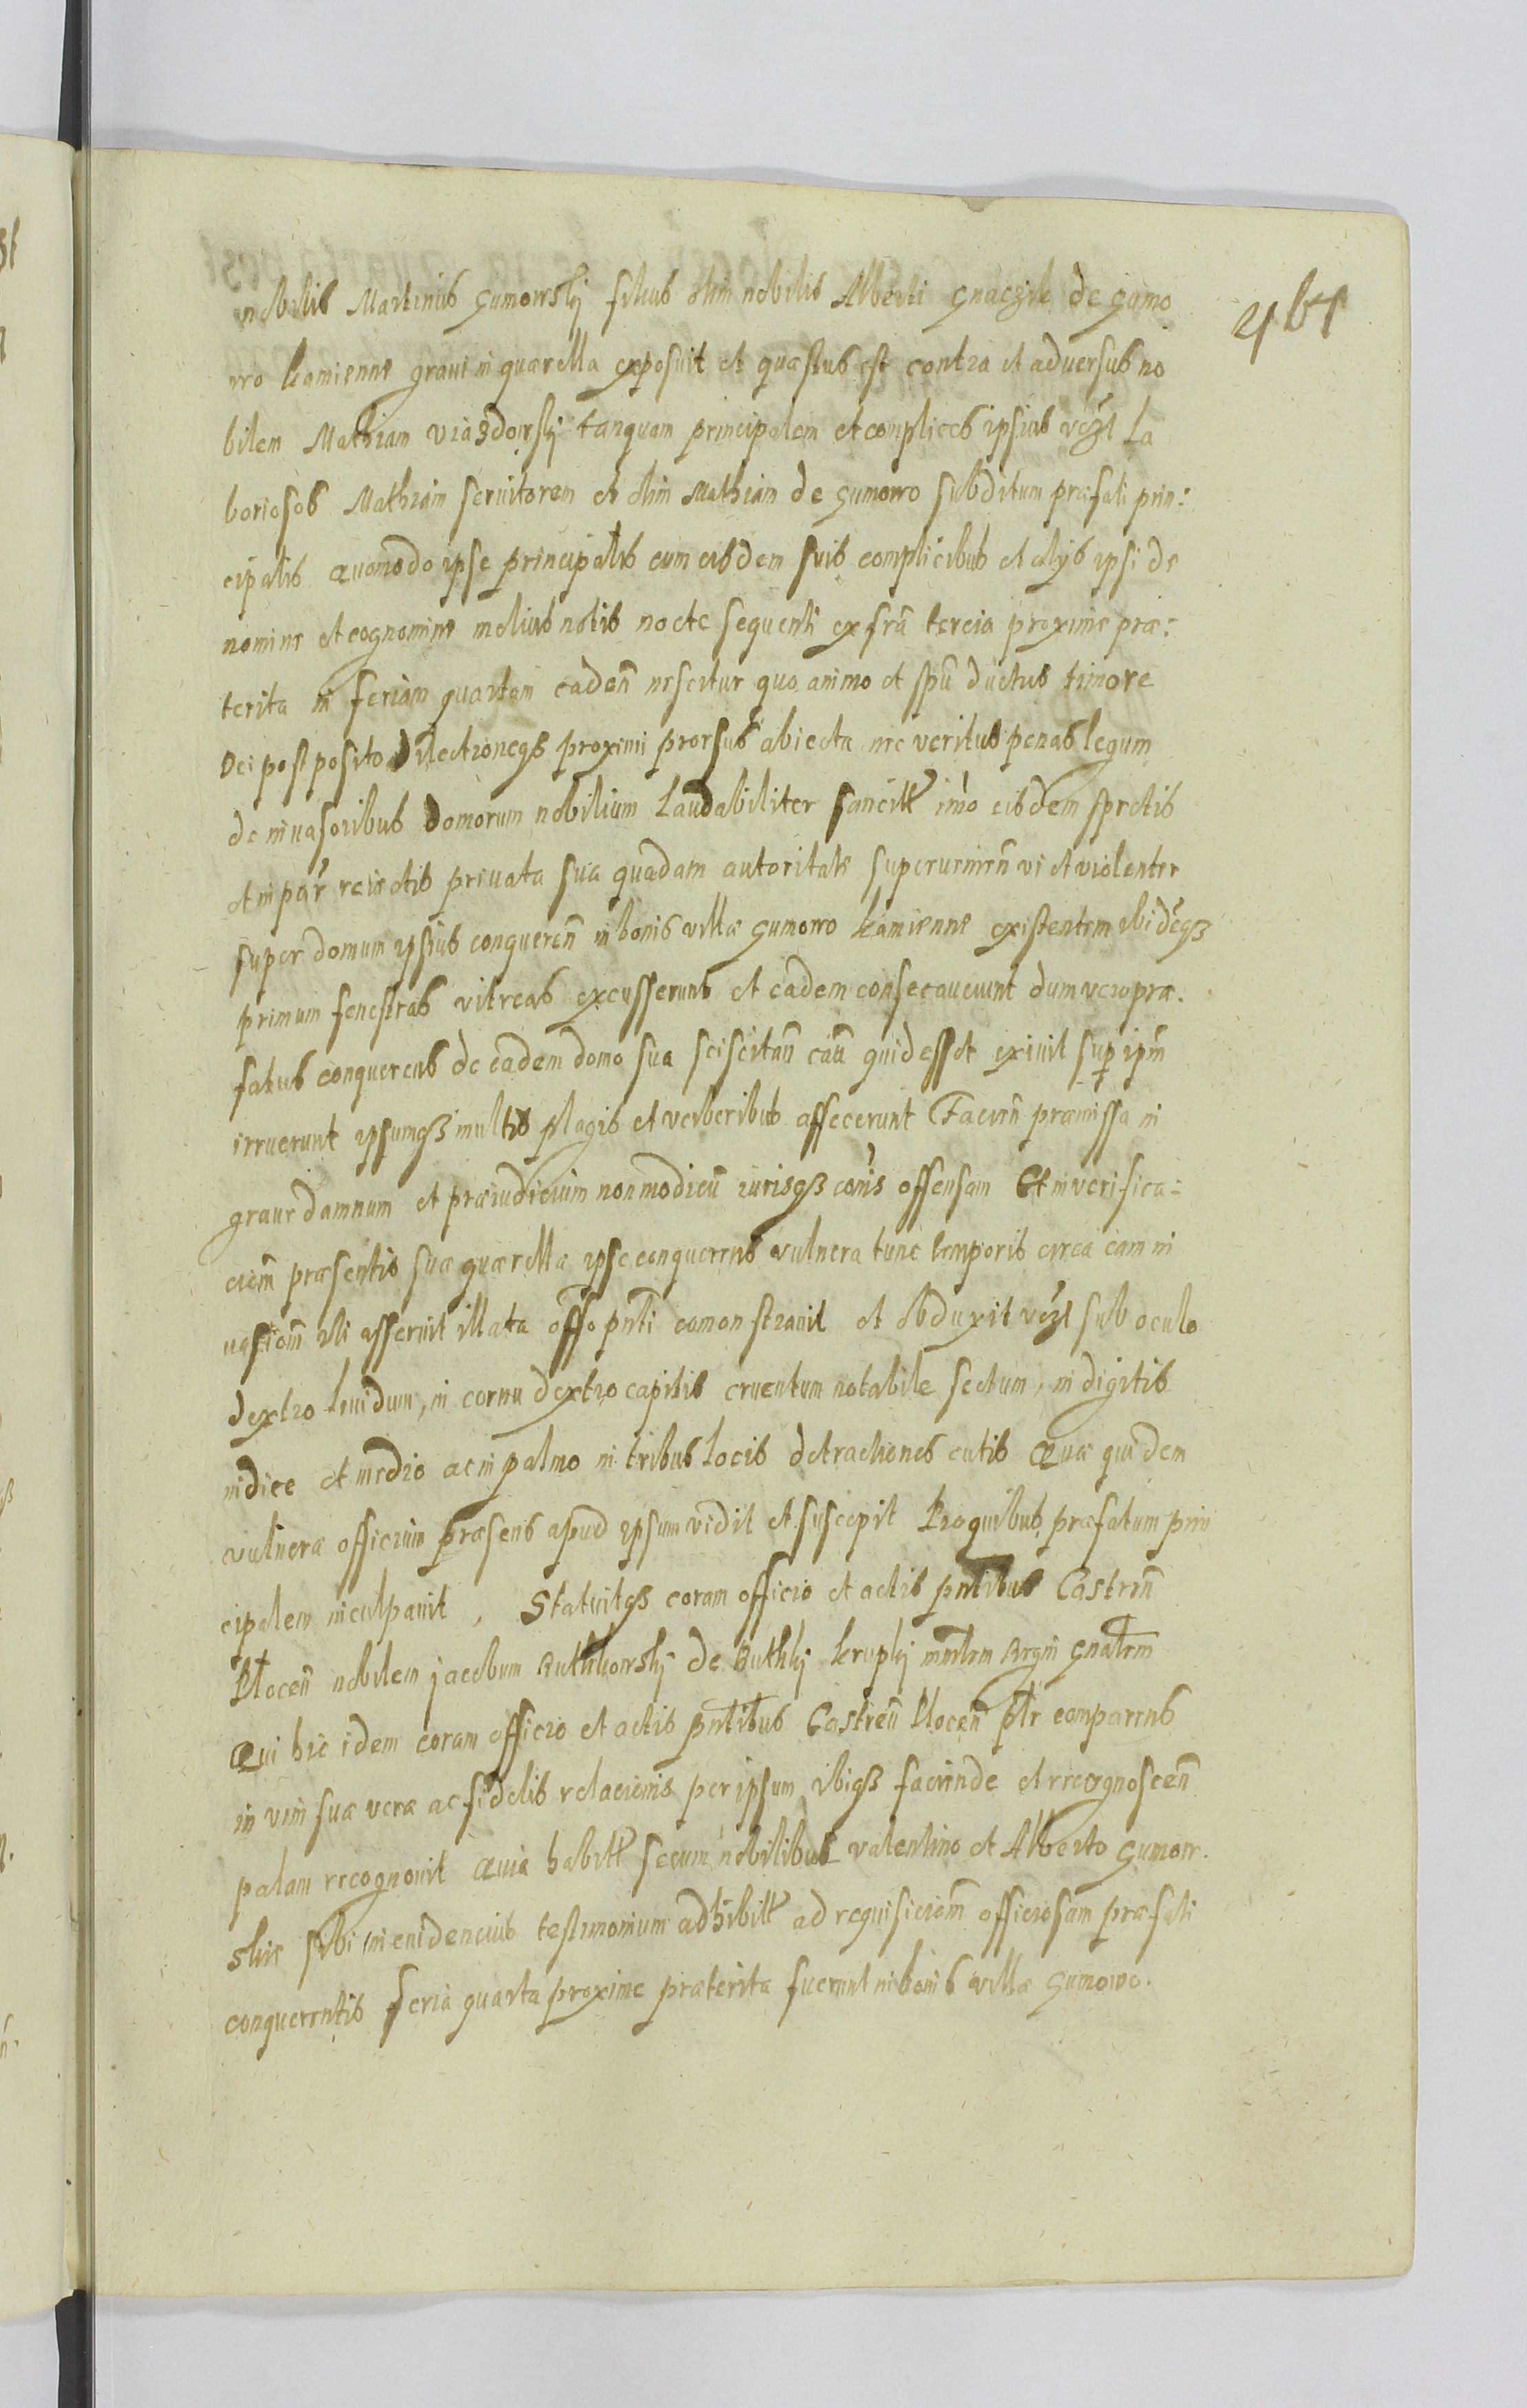 nobilis Martinus Gumowskj filius olim nobilis Alberti Gnaczik de Gumo
wo kamienne graui in quærella exposuit et quæstus est contra et aduersus no
bilem Mathiam Viasdowskj tanquam principalem et complices ipsius vczt La
boriosos Mathiam seruitorem et olim Mathiam de Gumowo subditum præfati prin:
cipalis Quomodo ipse principalis cum eisdem suis complicibus et alys ipsi de
nomine et cognomine melius notis nocte sequenti ex fra tercia proxime præ:
terita in feriam quartam eaden̄ nescitur quo animo et spū ductus timore
Dei postposito Dilectioneqз proximi prorsus abiecta nec veritus penas legum
de inuasoribus Domorum nobilium Laudabiliter sancitt imo eisdem spretis
et in par reiectis priuata sua quadam autoritate superuenien̄ vi et violenter
super domum ipsius conqueren̄ in bonis villæ Gumowo kamienne existentem ibideqз
primum fenestras vitreas excusserunt et eadem consecauerunt dum vero præ.
fatus conquerens de eadem domo sua sciscitan̄ cau̅ quid esset exiuit sup ipm̄
irruerunt ipsumqз multis plagis et verberibus affecerunt Facien̄ præmissa in
graue damnum et præiudicium non modicū iurisqз cōnis offensam Et in verifica:
cio̅m præsentis suæ quærellæ ipse conquerens vulnera tunc temporis circa eam in
uasio̅m illi asseruit illata offo pn̄ti comonstrauit et obduxit vczt sub oculo
dextro liuidum, in cornu dextro capitis cruentum notabile sectum, in digitis
indice et medio ac in palmo in tribus Locis detractiones cutis Quæ quidem
vulnera officium præsens apud ipsum vidit et suscepit Pro quibus præfatum prin
cipalem inculpauit, Statuitqз coram officio et actis pn̄tibus Castren̄
Plocen̄ nobilem jacobum Ruthkowskj de Ruthkj krupkj mnrlem Regni Gnalem
Qui hic idem coram officio et actis pn̄tibus Castren̄ Plocen̄ plr comparens
in vim suæ veræ ac fidelis relacionis per ipsum ibiqз faciendæ et recognoscen̄
palam recognouit Quia habitt secum nobilibus Valentino et Alberto Gumow.
skie sibi in euidencius testimonium adhibitt ad requisicio̅m officiosam præfati
conquerentis feria quarta proxime præterita fuerunt in bonis villæ Gumowo.